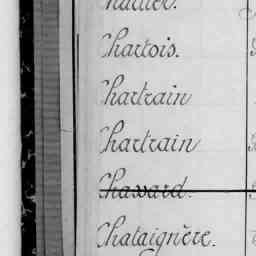 Chartier.
Chartois.
Chartrain
Chartrain
Chavard.
Chataignère.